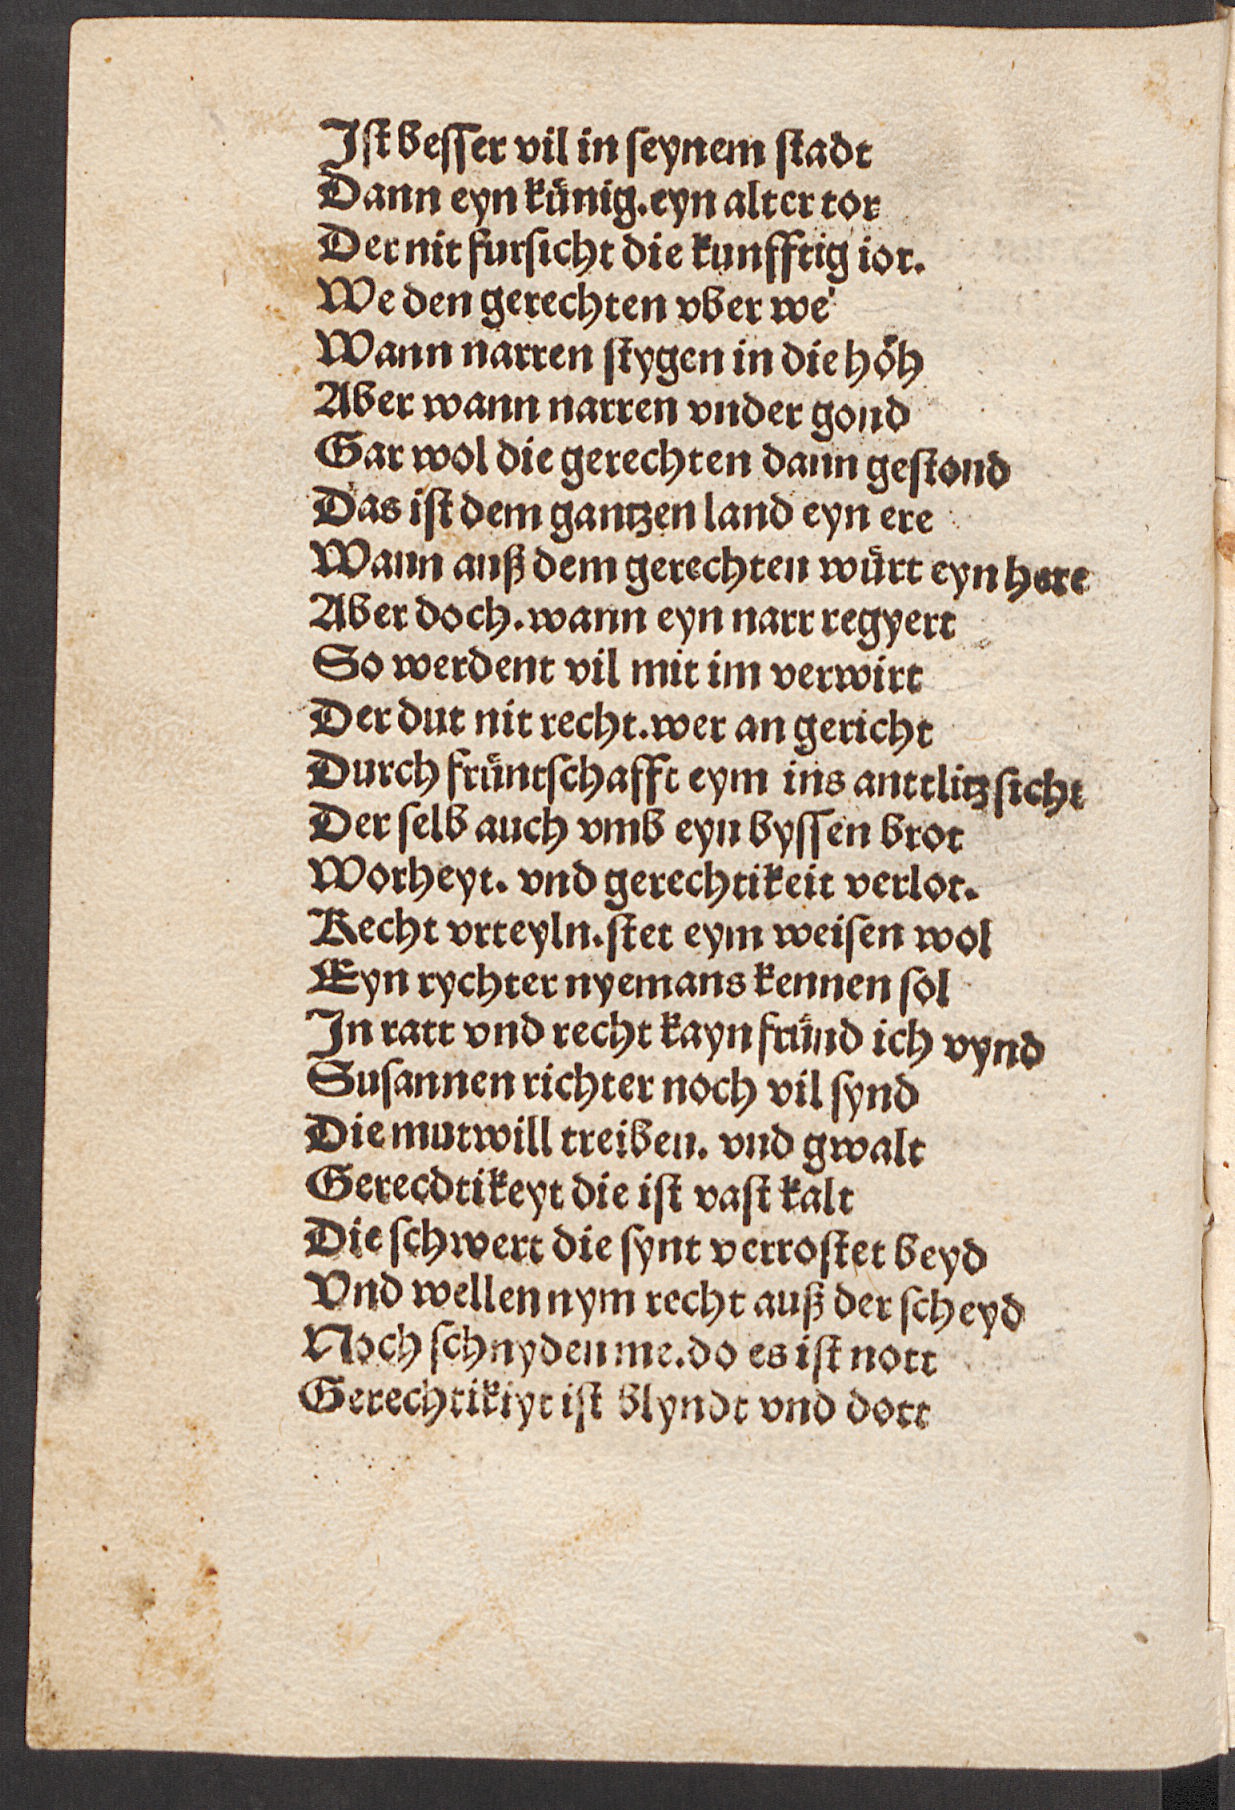 Iſt beſſer vil in ſeynem ſtadt
Dann eyn kuͤnig. eyn alter tor
Der nit furſicht die kunfftig ior.
We den gerechten vber we
Wann narren ſtygen in die hoͤh
Aber wann narren vnder gond
Gar wol die gerechten dann geſtond
Das iſt dem gantzen land eyn ere
Wann auß dem gerechten wuͤrt eyn here
Aber doch. wann eyn narr regyert
So werdent vil mit im verwirt
Der dut nit recht. wer an gericht
Durch fruͤntſchafft eym ins anttlitz ſicht
Der ſelb auch vmb eyn byſſen brot
Worheyt. vnd gerechtikeit verlot.
Recht vrteyln. ſtet eym weiſen wol
Eyn rychter nyemans kennen ſol
In ratt vnd recht kayn fruͤnd ich vynd
Suſannen richter noch vil ſynd
Die mutwill treiben. vnd gwalt
Gerecdtikeyt die iſt vaſt kalt
Die ſchwert die ſynt verroſtet beyd
Vnd wellen nym recht auß der ſcheyd
Noch ſchnyden me. do es iſt nott
Gerechtikiyt iſt blyndt vnd dott